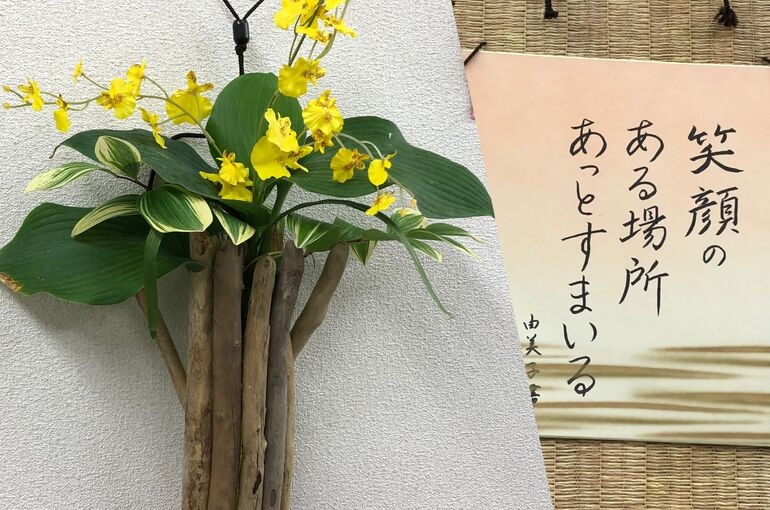 笑顔の
ある場所
あっとすまいる
由美子書